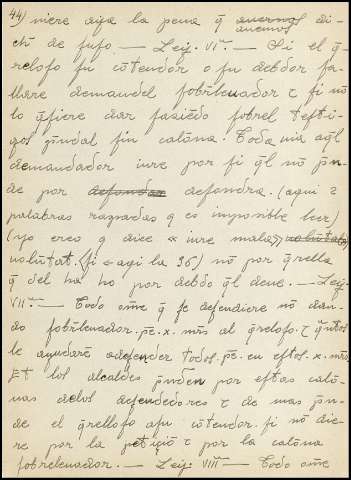 44) niere aija la pena q̃ auemos di-
ch̃ de suso. — Leiȷ. VIª. — Si el q̃-
relofo su cõtendor o su debdor fa-
llare demandel sobrleuador τ si nõ
lo q̃fiere dar faziẽdo sobrel testi-
gos p̃ndal sin calõna. Toda uia aq̃l
demandador iure por si q̃l nõ p̃n-
de por defondra. (aqui 2
palabras raspadas q es imposible leer)
(yo creo q dice « iure mala»
uolũtat. (fi = aqi la 36) nõ por q̃rella
q̃ del ha no por debdo q̃l deue. — Leiȷ.
VIIª. — Todo om̃e q̃ se defendiere nõ dan-
do sobrleuador. p̃e. x. mr̃s al q̃relofo. τ q̃ntos
le aȷudarẽ adefender todos. p̃e. en estos. x. mr̃s
Et los alcaldes p̃nden por estas calõ-
nas delos defendedores τ de mas p̃n-
de el q̃rellofo asu cõtendor. si nõ die-
re por la petiçiõ τ por la calõna
sobreleuador. — Leiȷ. VIIIª — Todo ome